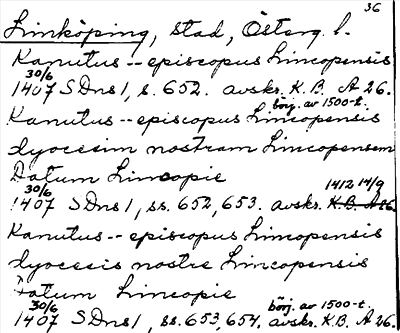 36
Linköping, stad, Österg. l.
Kanutus -- episcopus Lincopensis
30/6
1407 SDns 1, s. 652. avskr. K.B. A 26.
börj. av 1500-t.
Kanutus -- episcopus Lincopensis
dyocesim nostram Lincopensem
Datum Lincopie
30/6 1412 14/9
1407 SDns 1, ss. 652, 653. avskr. K.B. A 26.
Kanutus -- episcopus Lincopensis
dyocesis nostre Lincopensis
Datum Lincopie
30/6 börj. av 1500-t.
1407 SDns 1, ss. 653, 654. avskr. K.B. A 26.